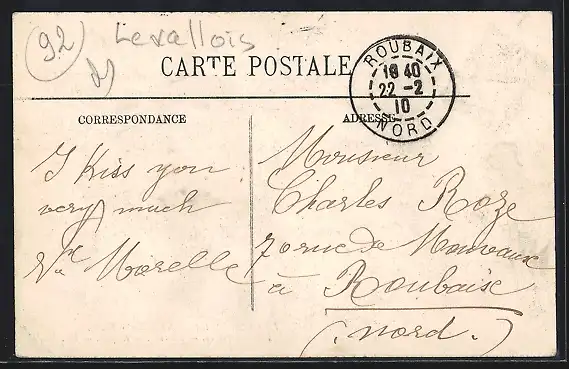 92
Levallois
CARTE POSTALE
ROUBAIX
18 40
22 -2
10
NORD
CORRESPONDANCE
ADRESSE
I Kiss you
very much
Morelle
Monsieur
Charles Roze
70 rue de Mouvaux
à Roubaix
(nord.)